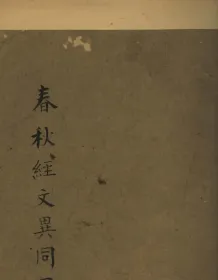 春秋經文異同